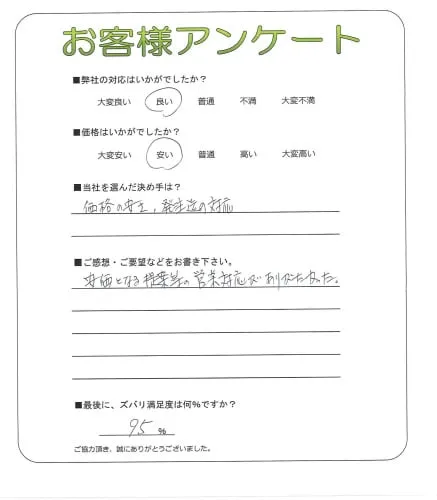 お客様アンケート
■弊社の対応はいかがでしたか?
大変良い 良い 普通 不満 大変不満
■価格はいかがでしたか?
大変安い 安い 普通 高い 大変高い
■当社を選んだ決め手は?
価格の安さ、発生迄の対応
■ご感想・ご要望などをお書き下さい。
安価となる提案等の営業対応がありがたかった。
■最後に、ズバリ満足度は何%ですか?
95 %
ご協力頂き、誠にありがとうございました。